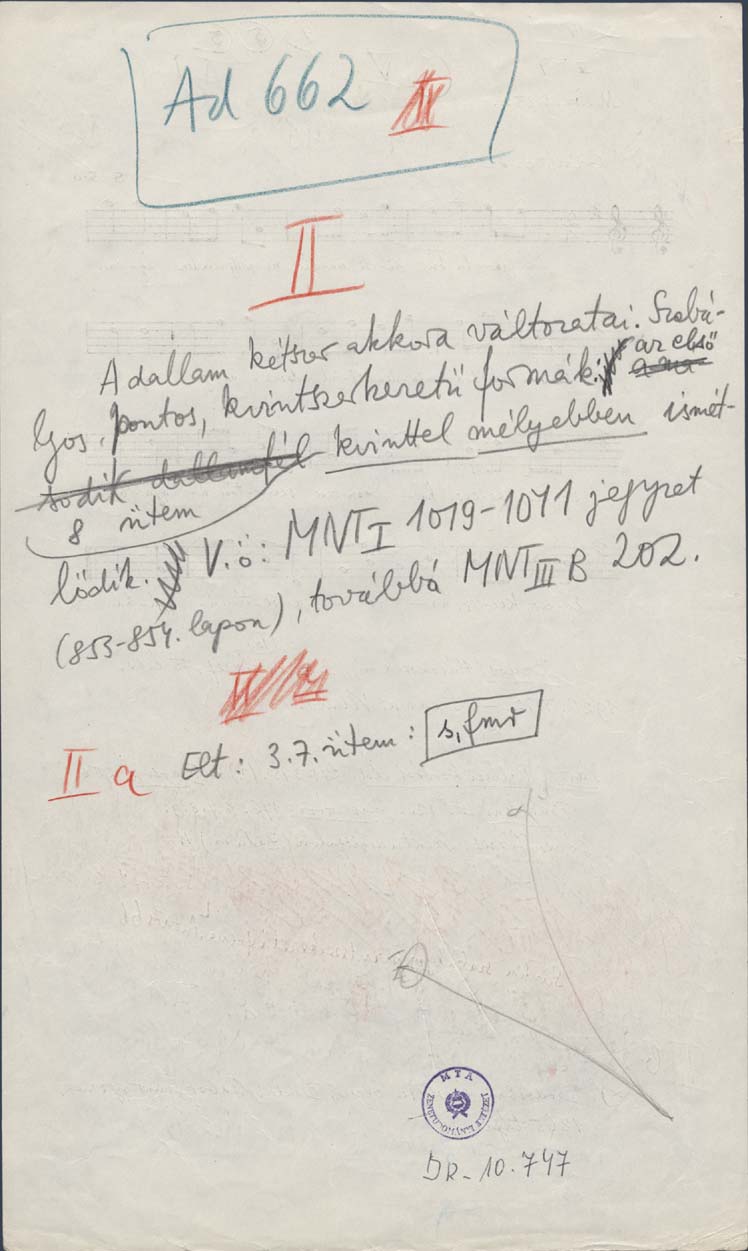 Ad 662
II
A dallam kétszer akkora változatai. Szabá-
lyos, pontos, kvintszerkezetű formák: az első
a má-
sodik dallamfél kvinttel mélyebben ismét-
8 ütem
lődik. V.ö: MNT I 1019-1071 jegyzet
(853-854. lapon), továbbá MNT III B 202.
II a Elt: 3.7. ütem: s, fmr
MTA
ZENETUD. KÖNYVTÁR
BR_10.747